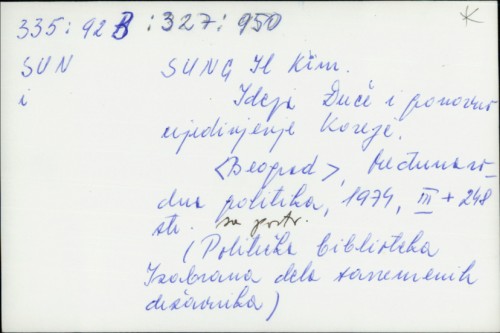 335:92B:327:950
SUN SUNG Il Kim.
i Ideja Đuče i ponovno
ujedinjenje Koreje.
<Beograd>, Međunaro-
dna politika, 1974, III + 248
str. sa portr.
(Politička biblioteka
Izabrana dela savremenih
državnika)